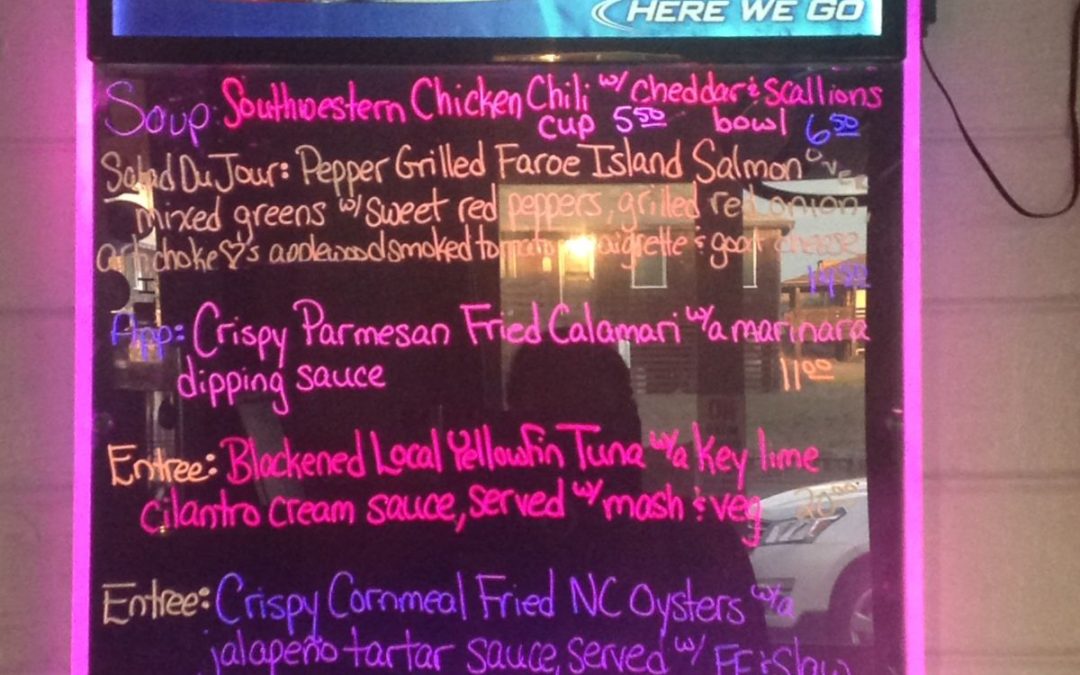 HERE WE GO
Soup: Southwestern Chicken Chili w/ cheddar & scallions
cup 5.50 bowl 6.50
Salad Du Jour: Pepper Grilled Faroe Island Salmon over
mixed greens w/ sweet red peppers, grilled red onion,
artichoke ♡'s applewood smoked tomato vinaigrette & goat cheese
14.50
App: Crispy Parmesan Fried Calamari w/a marinara
dipping sauce 11.00
Entree: Blackened Local Yellowfin Tuna w/a key lime
cilantro cream sauce, served w/ mash & veg 20.00
Entree: Crispy Cornmeal Fried NC Oysters w/a
jalapeño tartar sauce, served w/ FF & Slaw